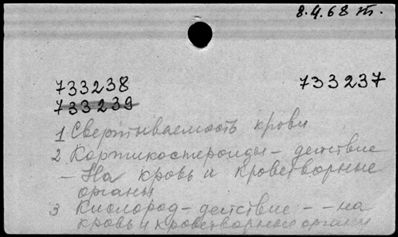 8.4.68 т.
733238 733237
733239
1 Свертываемость крови
2 Кортикостероиды - действие
- На кровь и кроветворные
органы
3 Кислород - действие - - на
кровь и кроветворные органы